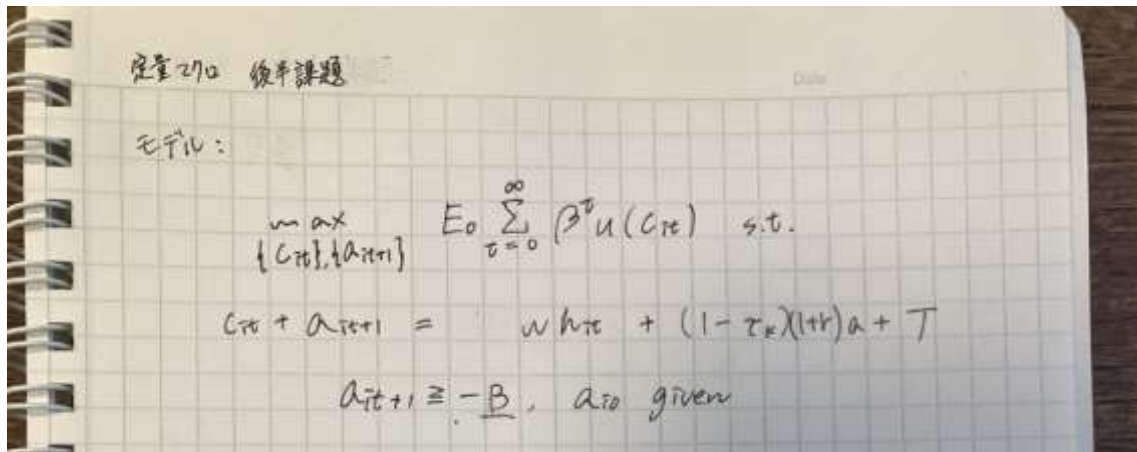 定量マクロ 後半課題
Date
モデル:
max E₀ ∑_{t=0}^{∞} β^t u(c_{it}) s.t.
{c_{it}},{a_{it+1}}
c_{it} + a_{it+1} = w h_{it} + (1-τ_k)(1+r)a + T
a_{it+1} ≧ -B, a_{i0} given